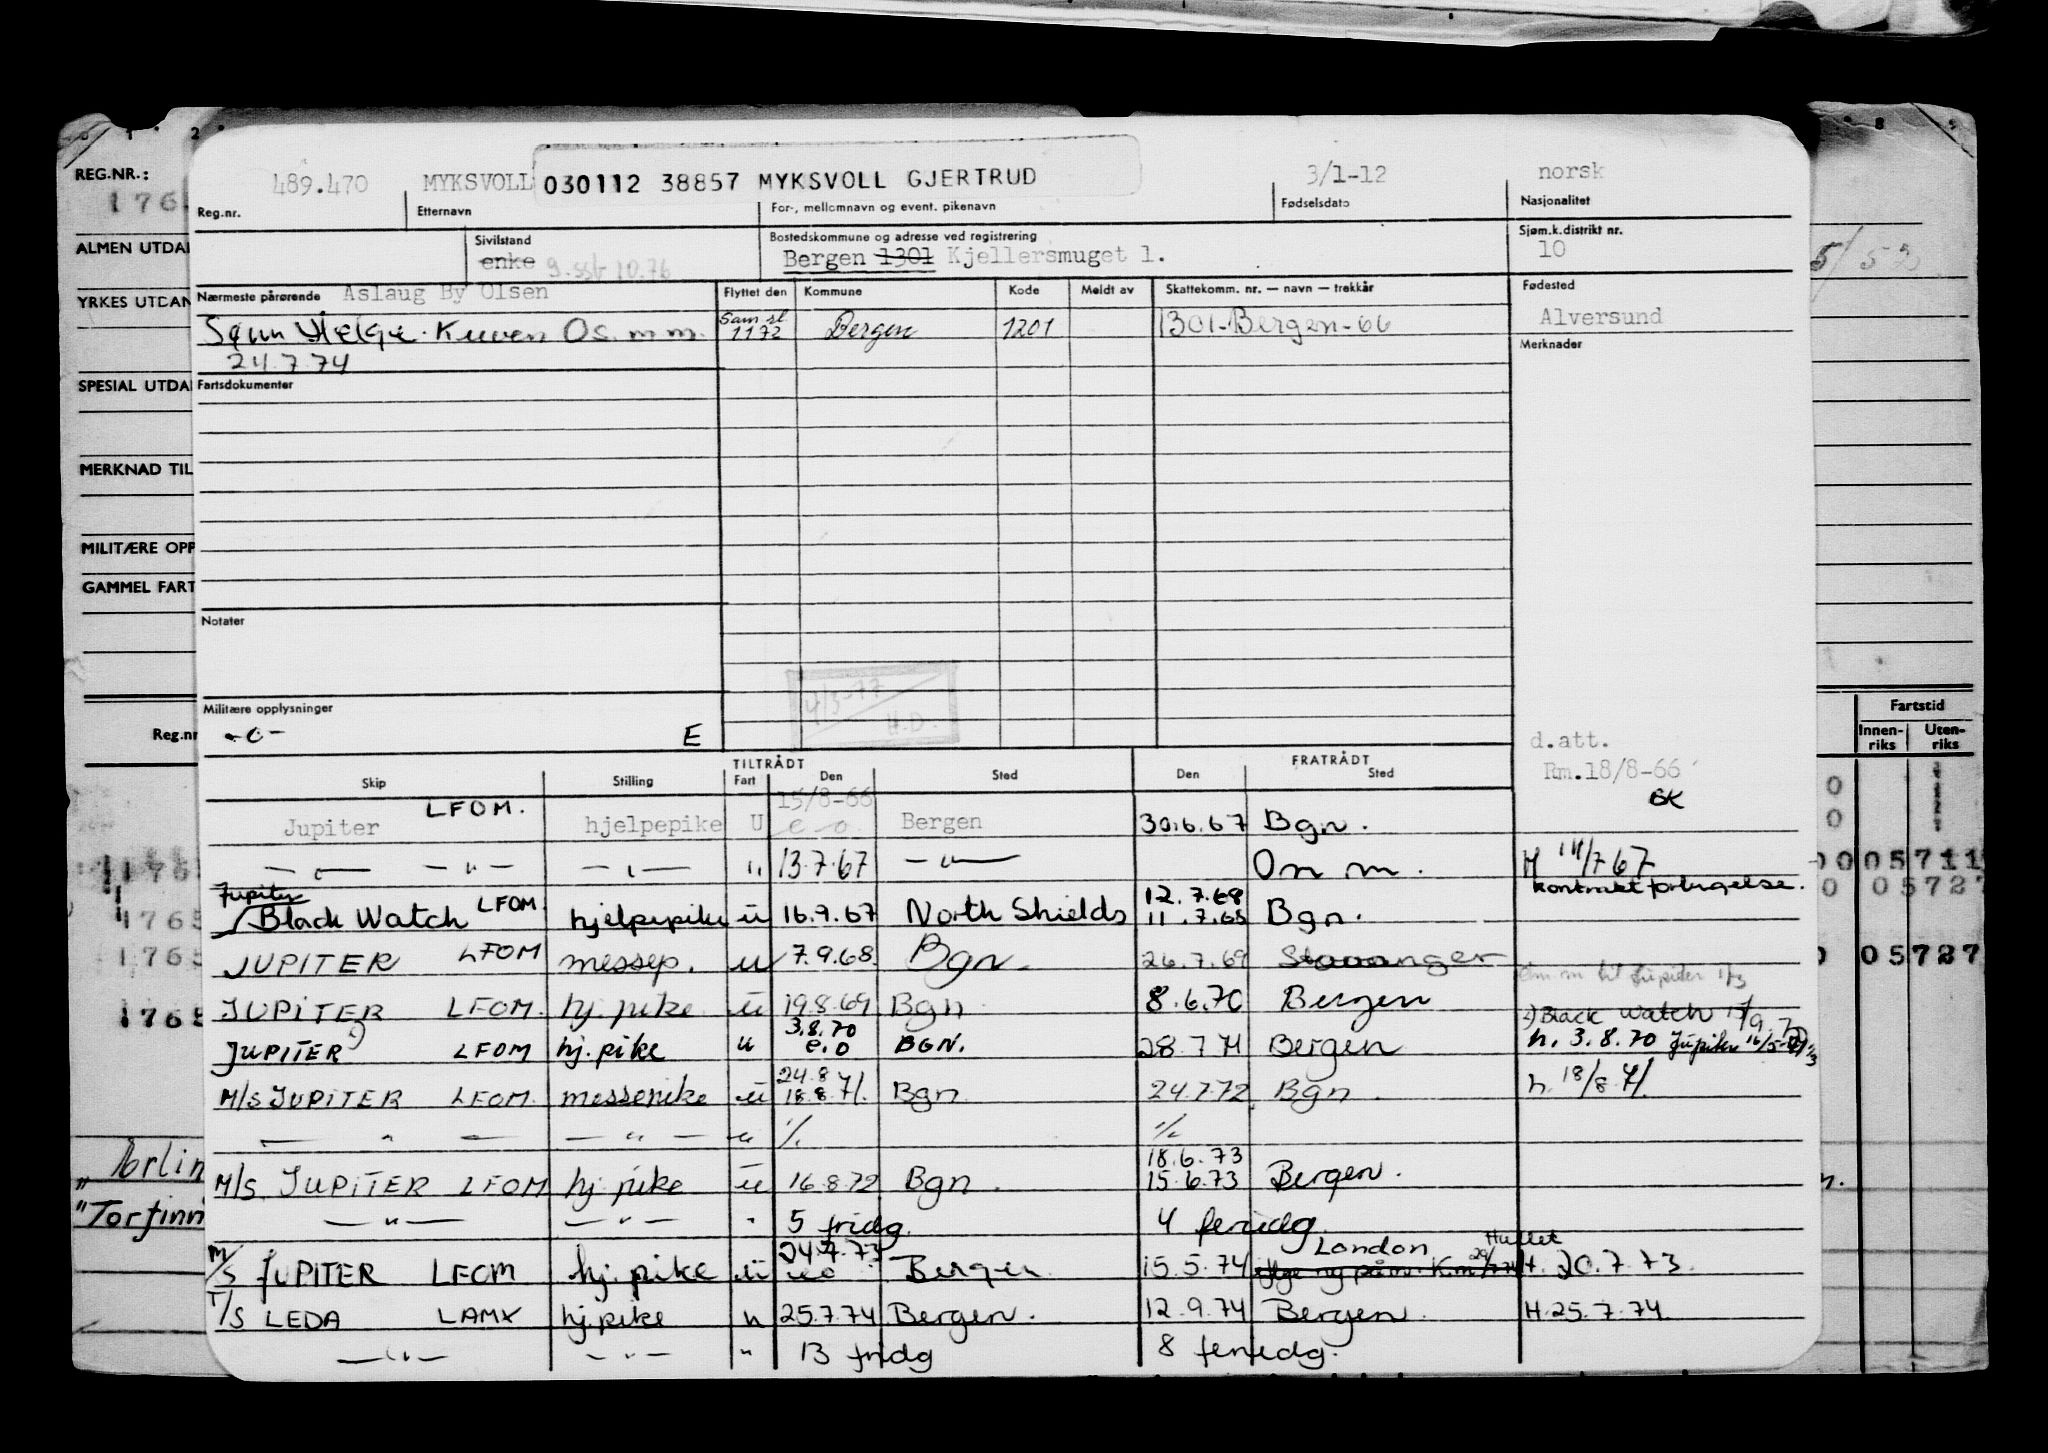 REG.NR.:
176
ALMEN UTDA
YRKES UTDAN
SPESIAL UTDA
MERKNAD TIL
MILITÆRE OPP
GAMMEL FART
Reg.nr
489.470 MYKSVOLL 030112 38857 MYKSVOLL GJERTRUD 3/1-12 norsk
Reg.nr. Etternavn For-, mellomnavn og event. pikenavn Fødselsdato Nasjonalitet
Sivilstand Bostedskommune og adresse ved registrering Sjøm.k.distrikt nr.
enke Bergen 1301 Kjellersmuget 1. 10
Nærmeste pårørende Aslaug By Olsen Flyttet den Kommune Kode Meldt av Skattekomm. nr. — navn — trekkår Fødested
Sønn Helge. Kuven Os. m m. Sam.sl. 1172 Bergen 1201 1301-Bergen-66 Alversund
24.7.74 Merknader
Fartsdokumenter
Notater
4/3-77
H.D.
Militære opplysninger
-o- E
d.att.
Rm.18/8-66
TILTRÅDT FRATRÅDT
Skip Stilling Fart Den Sted Den Sted
Jupiter LFOM. hjelpepike U 15/8-66 e o Bergen 30.6.67 Bgn.
— " — — " — — " — " 13.7.67 — " — On m. H 14/7 67
kontrakt forlengelse.
Jupiter
Black Watch LFOM hjelpepike u 16.9.67 North Shields 12.7.68 11.7.68 Bgn.
JUPITER LFOM messep. u 7.9.68. Bgn. 26.7.69 Stavanger
JUPITER LFOM. hj. pike u 19.8.69 Bgn 8.6.70 Bergen
JUPITER LFOM hj. pike u 3.8.70 e.o BGN. 28.7.71 Bergen h. 3.8.70 Jupiter 16/5-
M/S JUPITER LFOM. messepike u 24.8 18.8.71. Bgn 24.7.72 Bgn. h. 18/8.71.
— " — — " — u % %
M/S JUPITER LFOM hj. pike u 16.8.72 Bgn. 18.6.73 15.6.73 Bergen.
— " — — " — " 5 fridg. 4 feridg.
M/S JUPITER LFOM hj. pike u 24.7.73 eo Bergen 15.5.74 London H. 20.7.73.
T/S LEDA LAMX hj.pike u 25.7.74 Bergen. 12.9.74 Bergen. H.25.7.74.
— " — — " — " 13 fridg 8 feriedg.
Fartstid
Innen-riks Uten-riks
05711
05727
05727
"Torfinn